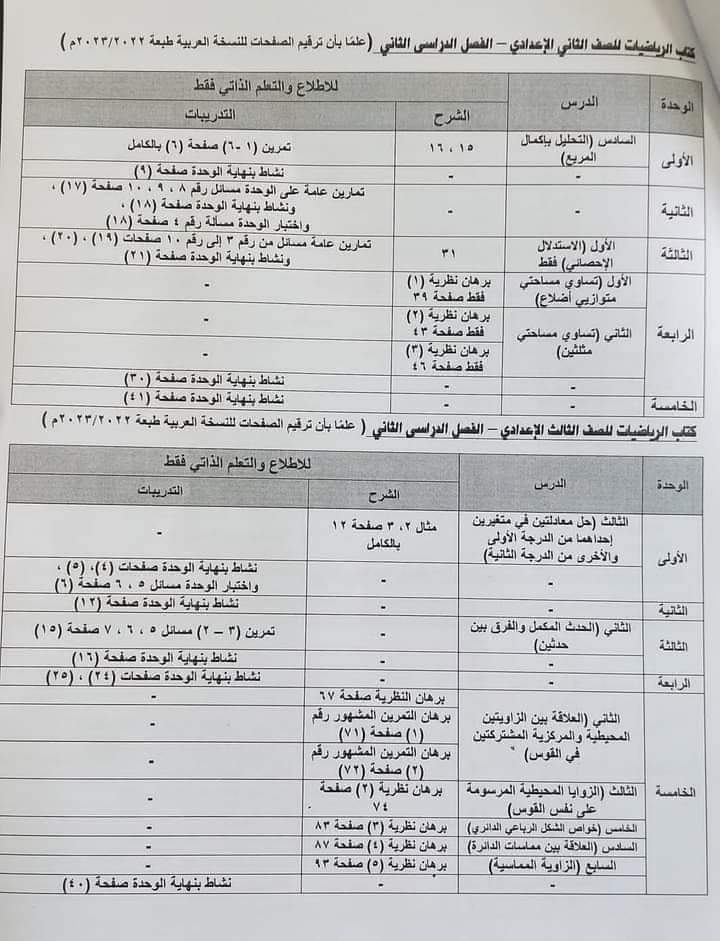 كتاب الرياضيات للصف الثاني الإعدادي – الفصل الدراسى الثاني (علمًا بأن ترقيم الصفحات للنسخة العربية طبعة ٢٠٢٣/٢٠٢٢م)
الوحدة الدرس للاطلاع والتعلم الذاتي فقط
الشرح التدريبات
الأولى السادس (التحليل بإكمال المربع) ١٥ ، ١٦ تمرين (١ -٦) صفحة (٦) بالكامل
- - نشاط بنهاية الوحدة صفحة (٩)
الثانية - - تمارين عامة على الوحدة مسائل رقم ٨ ، ٩ ، ١٠ صفحة (١٧) ،
ونشاط بنهاية الوحدة صفحة (١٨) ،
واختبار الوحدة مسألة رقم ٤ صفحة (١٨)
الثالثة الأول (الاستدلال الإحصائي) فقط ٣١ تمارين عامة مسائل من رقم ٣ إلى رقم ١٠ صفحات (١٩) ، (٢٠) ،
ونشاط بنهاية الوحدة صفحة (٢١)
الرابعة الأول (تساوي مساحتي متوازيي أضلاع) برهان نظرية (١) فقط صفحة ٣٩ -
الثاني (تساوي مساحتي مثلثين) برهان نظرية (٢) فقط صفحة ٤٣ -
برهان نظرية (٣) فقط صفحة ٤٦ -
- - نشاط بنهاية الوحدة صفحة (٣٠)
الخامسة - - نشاط بنهاية الوحدة صفحة (٤١)
كتاب الرياضيات للصف الثالث الإعدادي – الفصل الدراسى الثاني ( علمًا بأن ترقيم الصفحات للنسخة العربية طبعة ٢٠٢٣/٢٠٢٢م )
الوحدة الدرس للاطلاع والتعلم الذاتي فقط
الشرح التدريبات
الأولى الثالث (حل معادلتين في متغيرين إحداهما من الدرجة الأولى والأخرى من الدرجة الثانية) مثال ٢ ، ٣ صفحة ١٢ بالكامل -
- - نشاط بنهاية الوحدة صفحات (٤)، (٥) ،
واختبار الوحدة مسائل ٥ ، ٦ صفحة (٦)
الثانية - - نشاط بنهاية الوحدة صفحة (١٢)
الثالثة الثاني (الحدث المكمل والفرق بين حدثين) - تمرين (٣ – ٢) مسائل ٥ ، ٦ ، ٧ صفحة (١٥)
- - نشاط بنهاية الوحدة صفحة (١٦)
الرابعة - - نشاط بنهاية الوحدة صفحات (٢٤) ، (٢٥)
الخامسة الثاني (العلاقة بين الزاويتين المحيطية والمركزية المشتركتين في القوس) برهان النظرية صفحة ٦٧ -
برهان التمرين المشهور رقم (١) صفحة (٧١) -
برهان التمرين المشهور رقم (٢) صفحة (٧٢) -
الثالث (الزوايا المحيطية المرسومة على نفس القوس) برهان نظرية (٢) صفحة ٧٤ -
الخامس (خواص الشكل الرباعي الدائري) برهان نظرية (٣) صفحة ٨٣ -
السادس (العلاقة بين مماسات الدائرة) برهان نظرية (٤) صفحة ٨٧ -
السابع (الزاوية المماسية) برهان نظرية (٥) صفحة ٩٣ -
- - نشاط بنهاية الوحدة صفحة (٤٠)